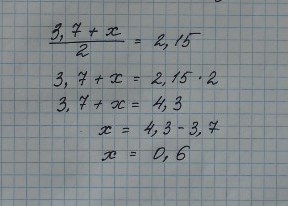 (3,7 + x)/2 = 2,15
3,7 + x = 2,15 · 2
3,7 + x = 4,3
x = 4,3 - 3,7
x = 0,6